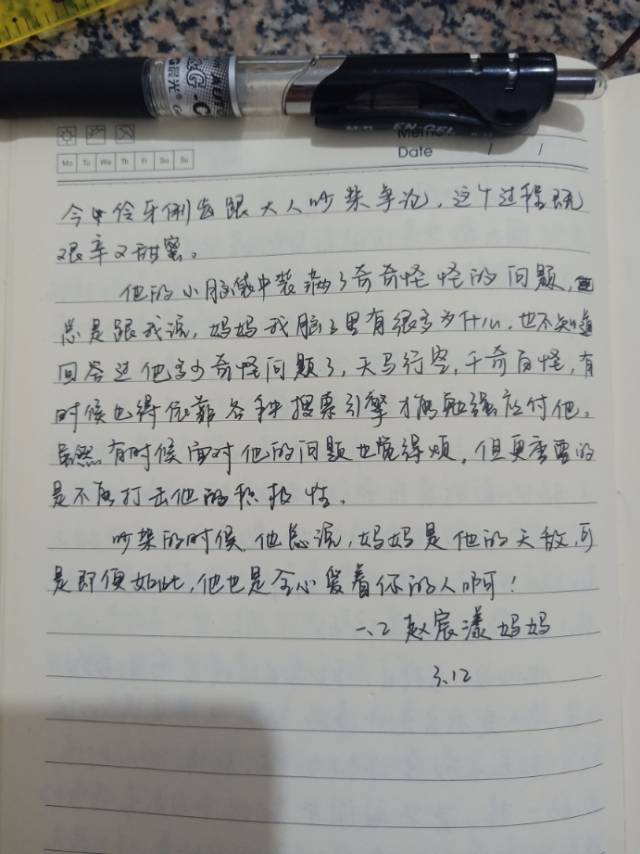 晨光
Memo
Mo Tu We Th Fr Sa Su
Date / /
伶牙俐齿跟大人吵架争论,这个过程既
艰辛又甜蜜。
他的小脑袋中装满了奇奇怪怪的问题,
总是跟我说,妈妈我脑子里有很多为什么,也不知道
回答过他多少奇怪问题了,天马行空,千奇百怪,有
时候也得依靠各种搜索引擎才能勉强应付他。
虽然有时候面对他的问题也觉得烦,但更重要的
是不能打击他的积极性。
吵架的时候他总说,妈妈是他的天敌,可
是即便如此,他也是全心爱着你的人啊!
一、2 赵宸漾妈妈
3.12